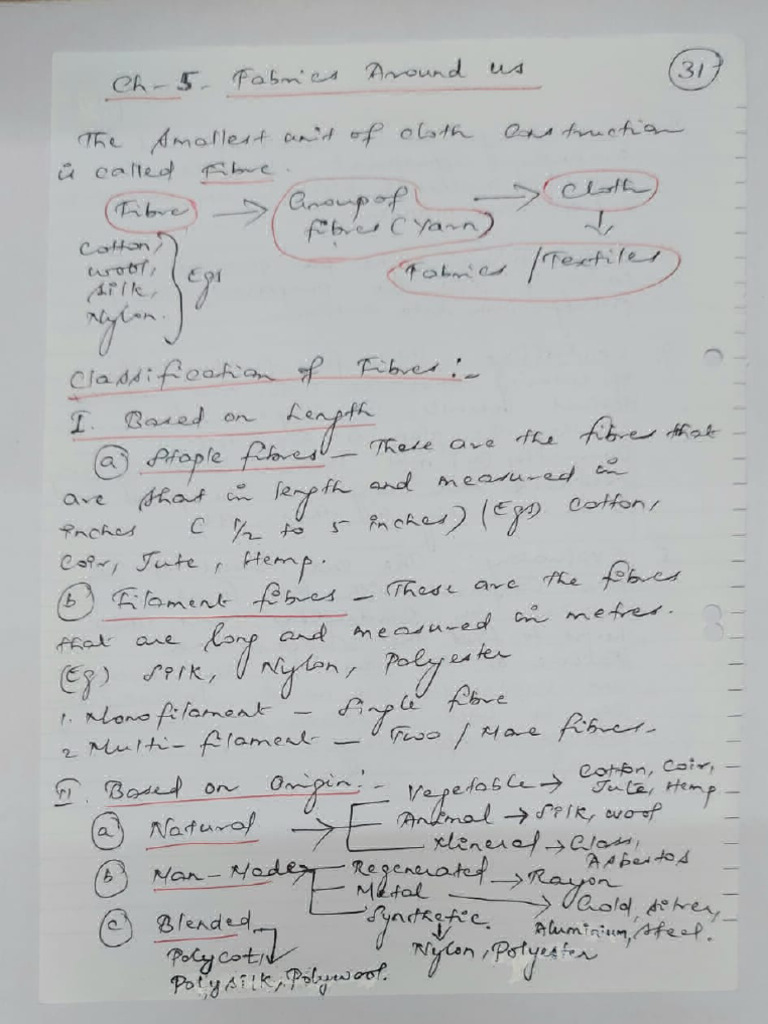 Ch-5- Fabrics Around us
31
The smallest unit of cloth construction
is called Fibre.
Fibre → Group of fibres (Yarn) → Cloth
↓
Fabrics / Textiles
Cotton,
wool,
silk,
Nylon.
Egs
Classification of Fibres:-
I. Based on Length
(a) Staple fibres - These are the fibres that
are short in length and measured in
inches ( 1/2 to 5 inches) (Egs) Cotton,
Coir, Jute, Hemp.
(b) Filament fibres - These are the fibres
that are long and measured in metres.
(Eg) Silk, Nylon, Polyester
1. Monofilament - Single fibre
2 Multi-filament - Two / More fibres.
II. Based on Origin:-
(a) Natural →
Vegetable → Cotton, Coir,
Jute, Hemp
Animal → Silk, wool
Mineral → Glass,
Asbestos
(b) Man-Made
Regenerated → Rayon
Metal → Gold, Silver,
Aluminium, Steel.
Synthetic.
↓
Nylon, Polyester
(c) Blended
Polycot,
Polysilk, Polywool.